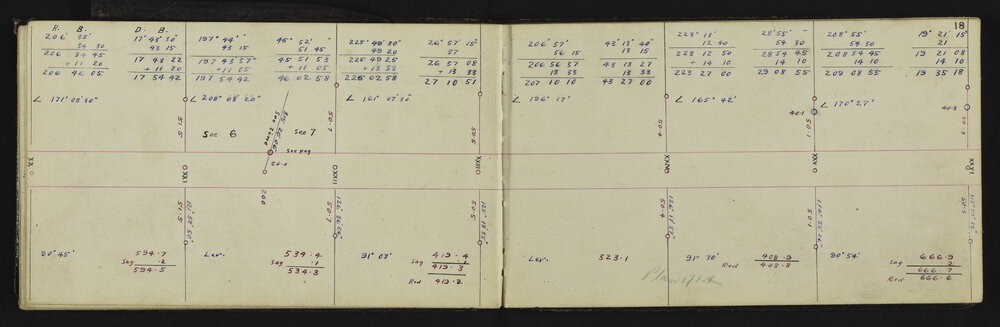 18
R. B. D. B.
206° 35' 17° 43' 30"
34 30 43 15
206 34 45 17 43 22
+ 11 20 + 11 20
206 46 05 17 54 42
197° 44' 45° 52'
43 15 51 45
197 43 37 45 51 53
+ 11 05 + 11 05
197 54 42 46 02 58
225° 49' 30" 26° 57' 15"
49 20 57
225 49 25 26 57 08
+ 13 33 + 13 33
226 02 58 27 10 51
206° 57' 43° 13' 40"
56 15 13 15
206 56 37 43 13 27
13 33 13 33
207 10 10 43 27 00
223° 13' 28° 55'
12 40 54 30
223 12 50 28 54 45
+ 14 10 14 10
223 27 00 29 08 55
208° 55' 19° 21' 15"
54 30 21
208 54 45 19 21 08
14 10 14 10
209 08 55 19 35 18
∠ 171° 08' 30"
∠ 208° 08' 20"
∠ 161° 07' 20"
∠ 196° 17'
∠ 165° 42'
∠ 170° 27'
51.5
Sec 6
Sec 7
50.7
50.4
40.1
50.1
40.8
See peg
50.0
XX
XXI
XXII
XXIII
XXIV
XXV
XXVI
200
51.5
50.7
50.5
50.4
50.1
50.5
90° 45'
594.7
Sag .2
594.5
Lev.
534.4
Sag .1
534.3
91° 03'
419.4
Sag .1
419.3
Red 419.2
Lev.
323.1
91° 30'
408.9
Red 408.8
90° 54'
666.9
Sag .2
666.7
Red 666.6